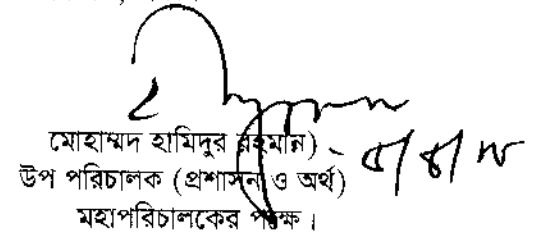 মোহাম্মদ হামিদুর রহমান)
উপ পরিচালক (প্রশাসন ও অর্থ)
মহাপরিচালকের পক্ষে।